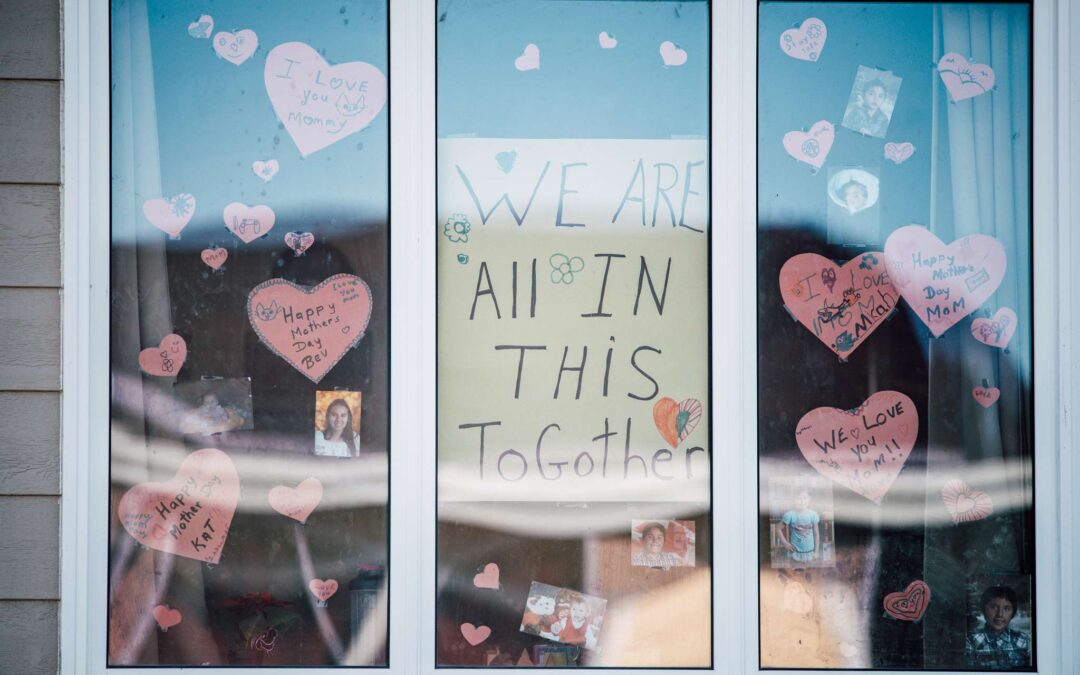 I LOVE
You
Mommy
Mom
I Love
You
mom
Happy
Mothers
Day
Bev
Happy
Mother Day
KAT
Happy
mom
day
WE ARE
All IN
THis
ToGother
Stay
Safe
I LOVE
Happy
Mother's
Day
MOM
WE LOVE
you
Mom!!